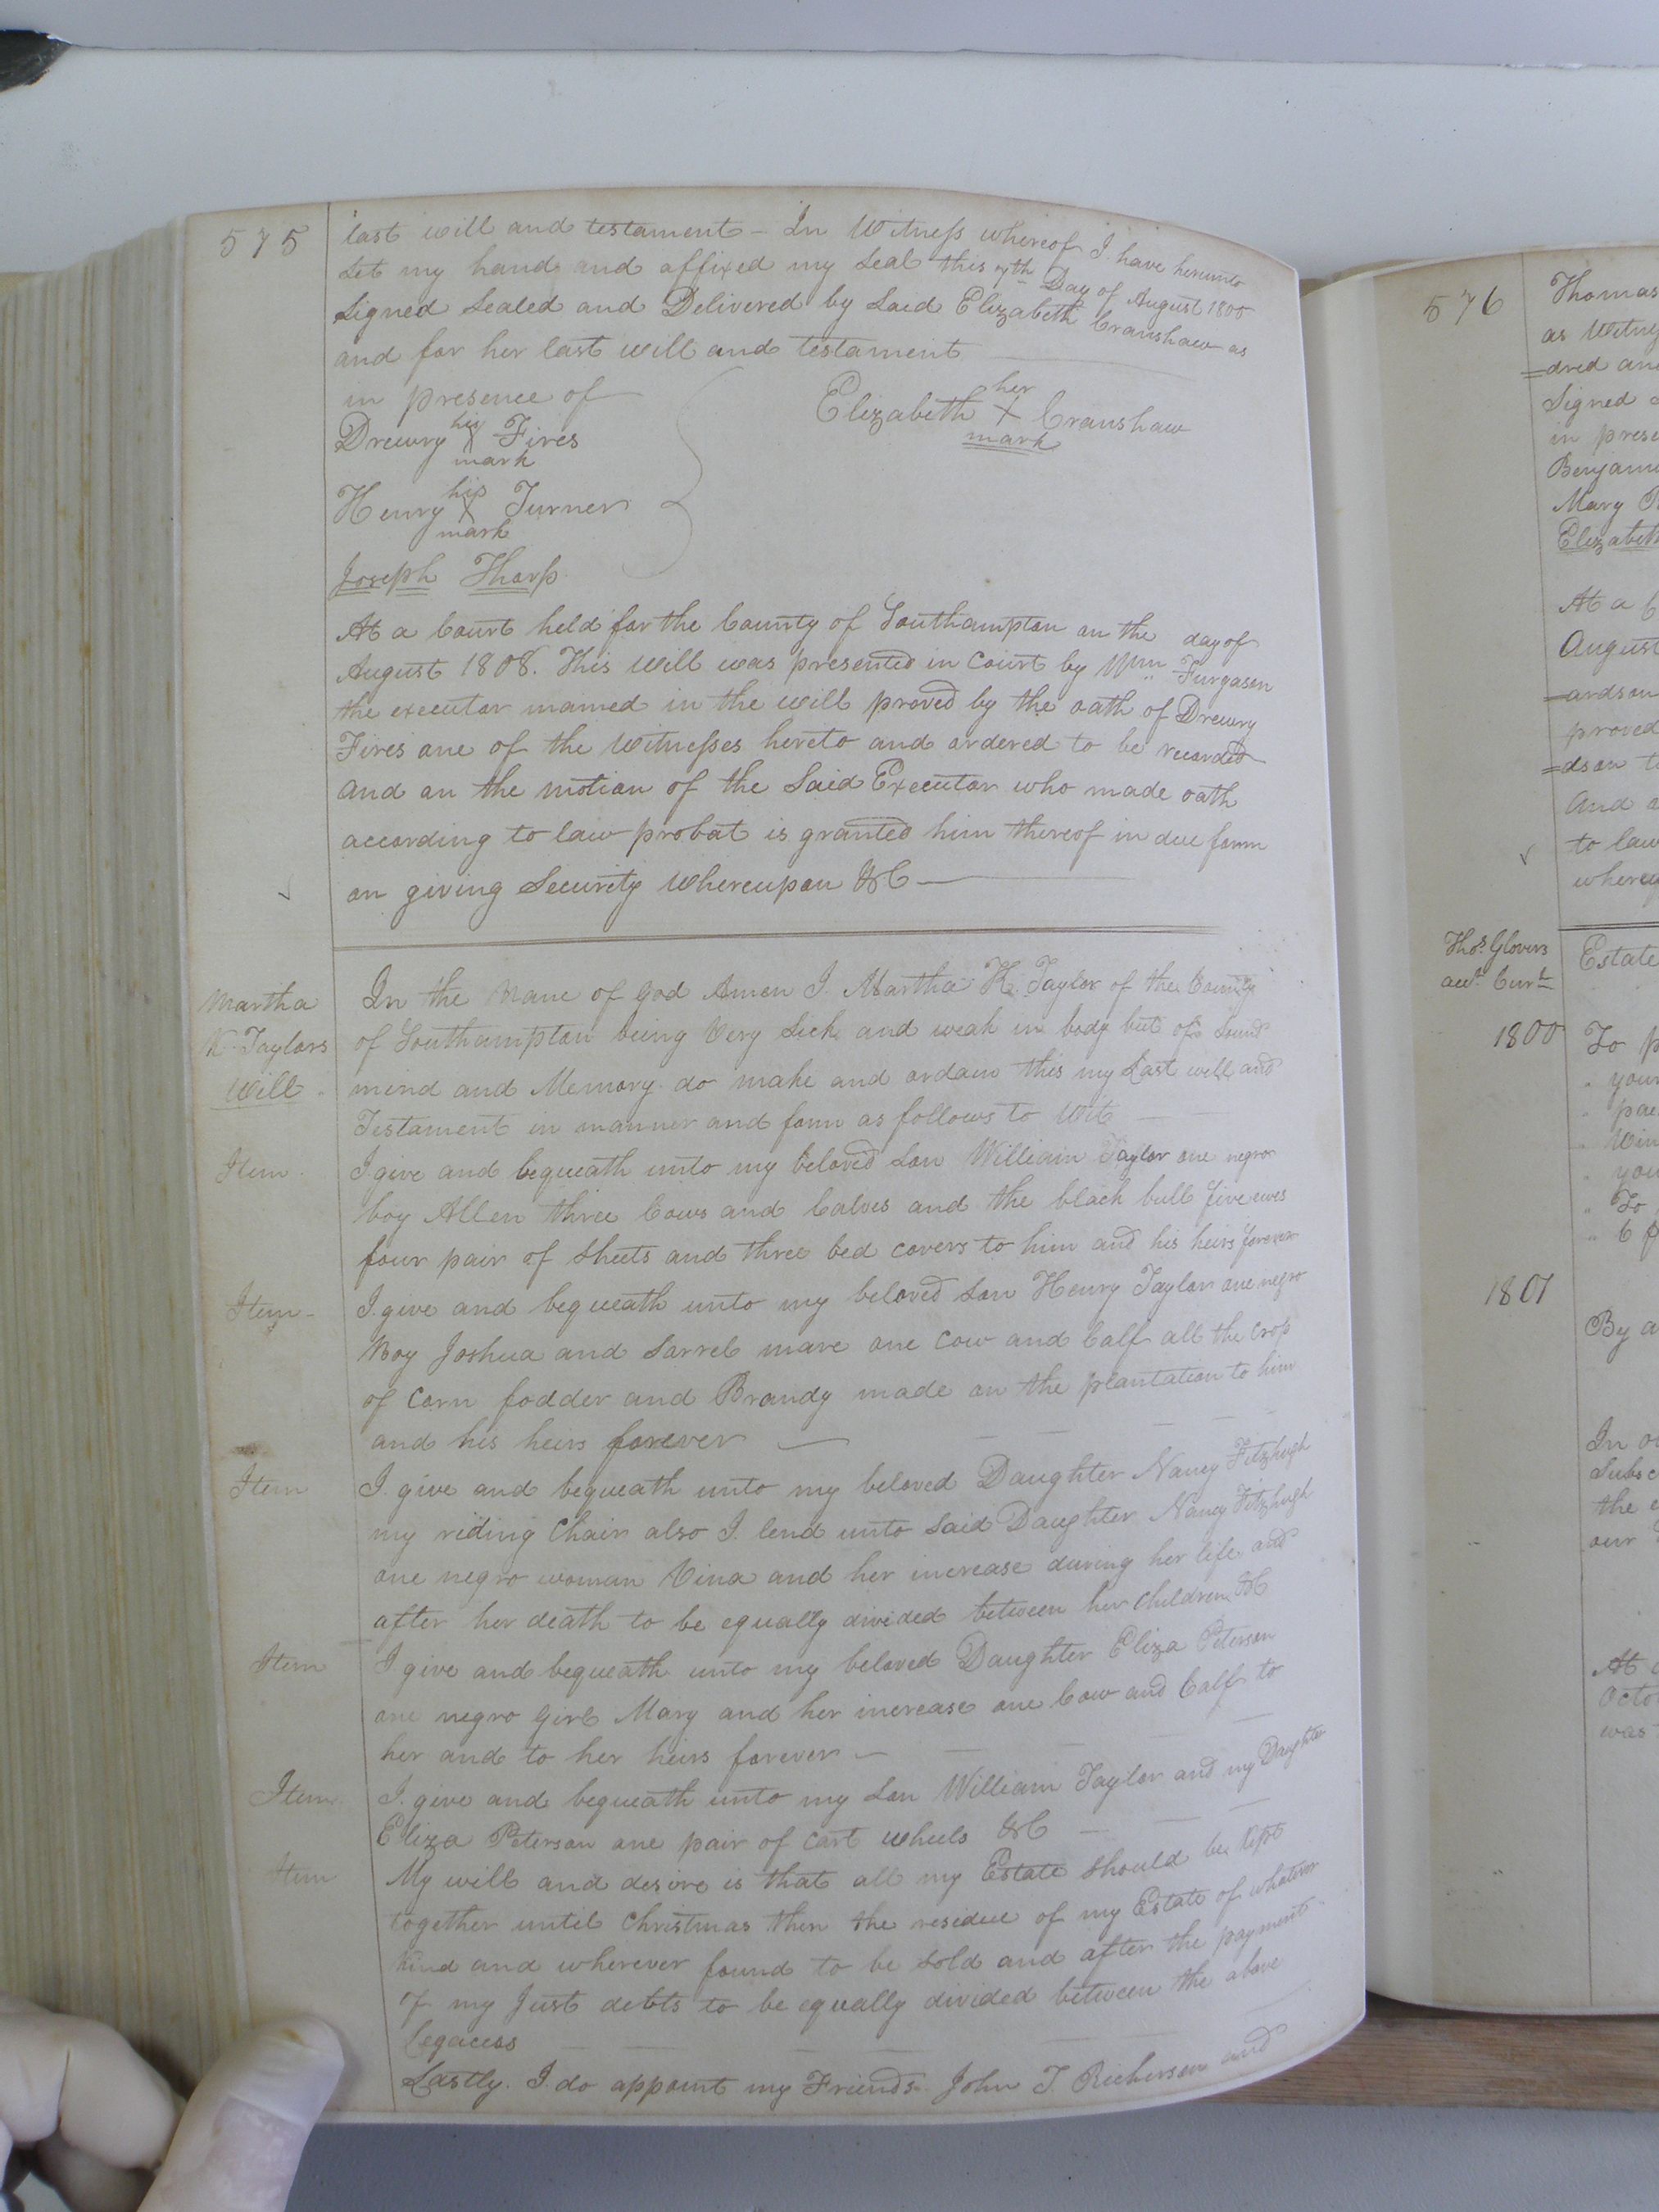 575
last will and testament – In Witness whereof I have hereunto
Set my hand and affixed my Seal this 7th Day of August 1805
Signed Sealed and Delivered by Said Elizabeth Cranshaw as
and for her last will and testament
in presence of
Elizabeth her X Cranshaw
mark
Drewry his X Fires
mark
Henry his X Turner
mark
Joseph Tharp
At a Court held for the County of Southampton on the day of
August 1808. This Will was presented in Court by Wm Furgason
the executor named in the will proved by the oath of Drewry
Fires one of the Witnesses hereto and ordered to be recorded
And on the motion of the Said Executor who made oath
according to law probat is granted him thereof in due form
on giving Security Whereupon &C
Martha
K. Taylors
Will
In the Name of God Amen I. Martha K. Taylor of the County
of Southampton being Very Sick and weak in body but of Sound
mind and Memory do make and ordain this my Last will and
Testament in manner and form as follows to Wit
Item I give and bequeath unto my beloved Son William Taylor one negro
boy Allen three Cows and Calves and the black bull five ewes
four pair of Sheets and three bed covers to him and his heirs forever
Item I. give and bequeath unto my beloved Son Henry Taylor one negro
Boy Joshua and Sorrel mare one Cow and Calf all the Crop
of Corn fodder and Brandy made on the plantation to him
and his heirs forever
Item I. give and bequeath unto my beloved Daughter Nancy Fitzhugh
my riding Chair also I. lend unto Said Daughter Nancy Fitzhugh
one negro woman Vina and her increase during her life and
after her death to be equally divided between her Children &C
Item I give and bequeath unto my beloved Daughter Eliza Peterson
one negro Girl Mary and her increase one Cow and Calf to
her and to her heirs forever
Item I. give and bequeath unto my Son William Taylor and my Daughter
Eliza Peterson one pair of Cart Wheels &C
Item My will and desire is that all my Estate Should be Kept
together until Christmas then the residue of my Estate of whatever
Kind and wherever found to be Sold and after the payment
of my Just debts to be equally divided between the above
Legacess
Lastly. I. do appoint my Friends John T. Richerson and
576
Thomas
as Witness
=dred and
Signed
in prese
Benjami
Mary
Elizabeth
At a C
August
=ardson
proved
=dson to
And o
to law
whereup
Thos. Glovers
Estate
acct. Curt
1800
To p
your
pae
Win
you
To
6
1801
By a
In o
Subsc
the e
our
At a
Octo
was